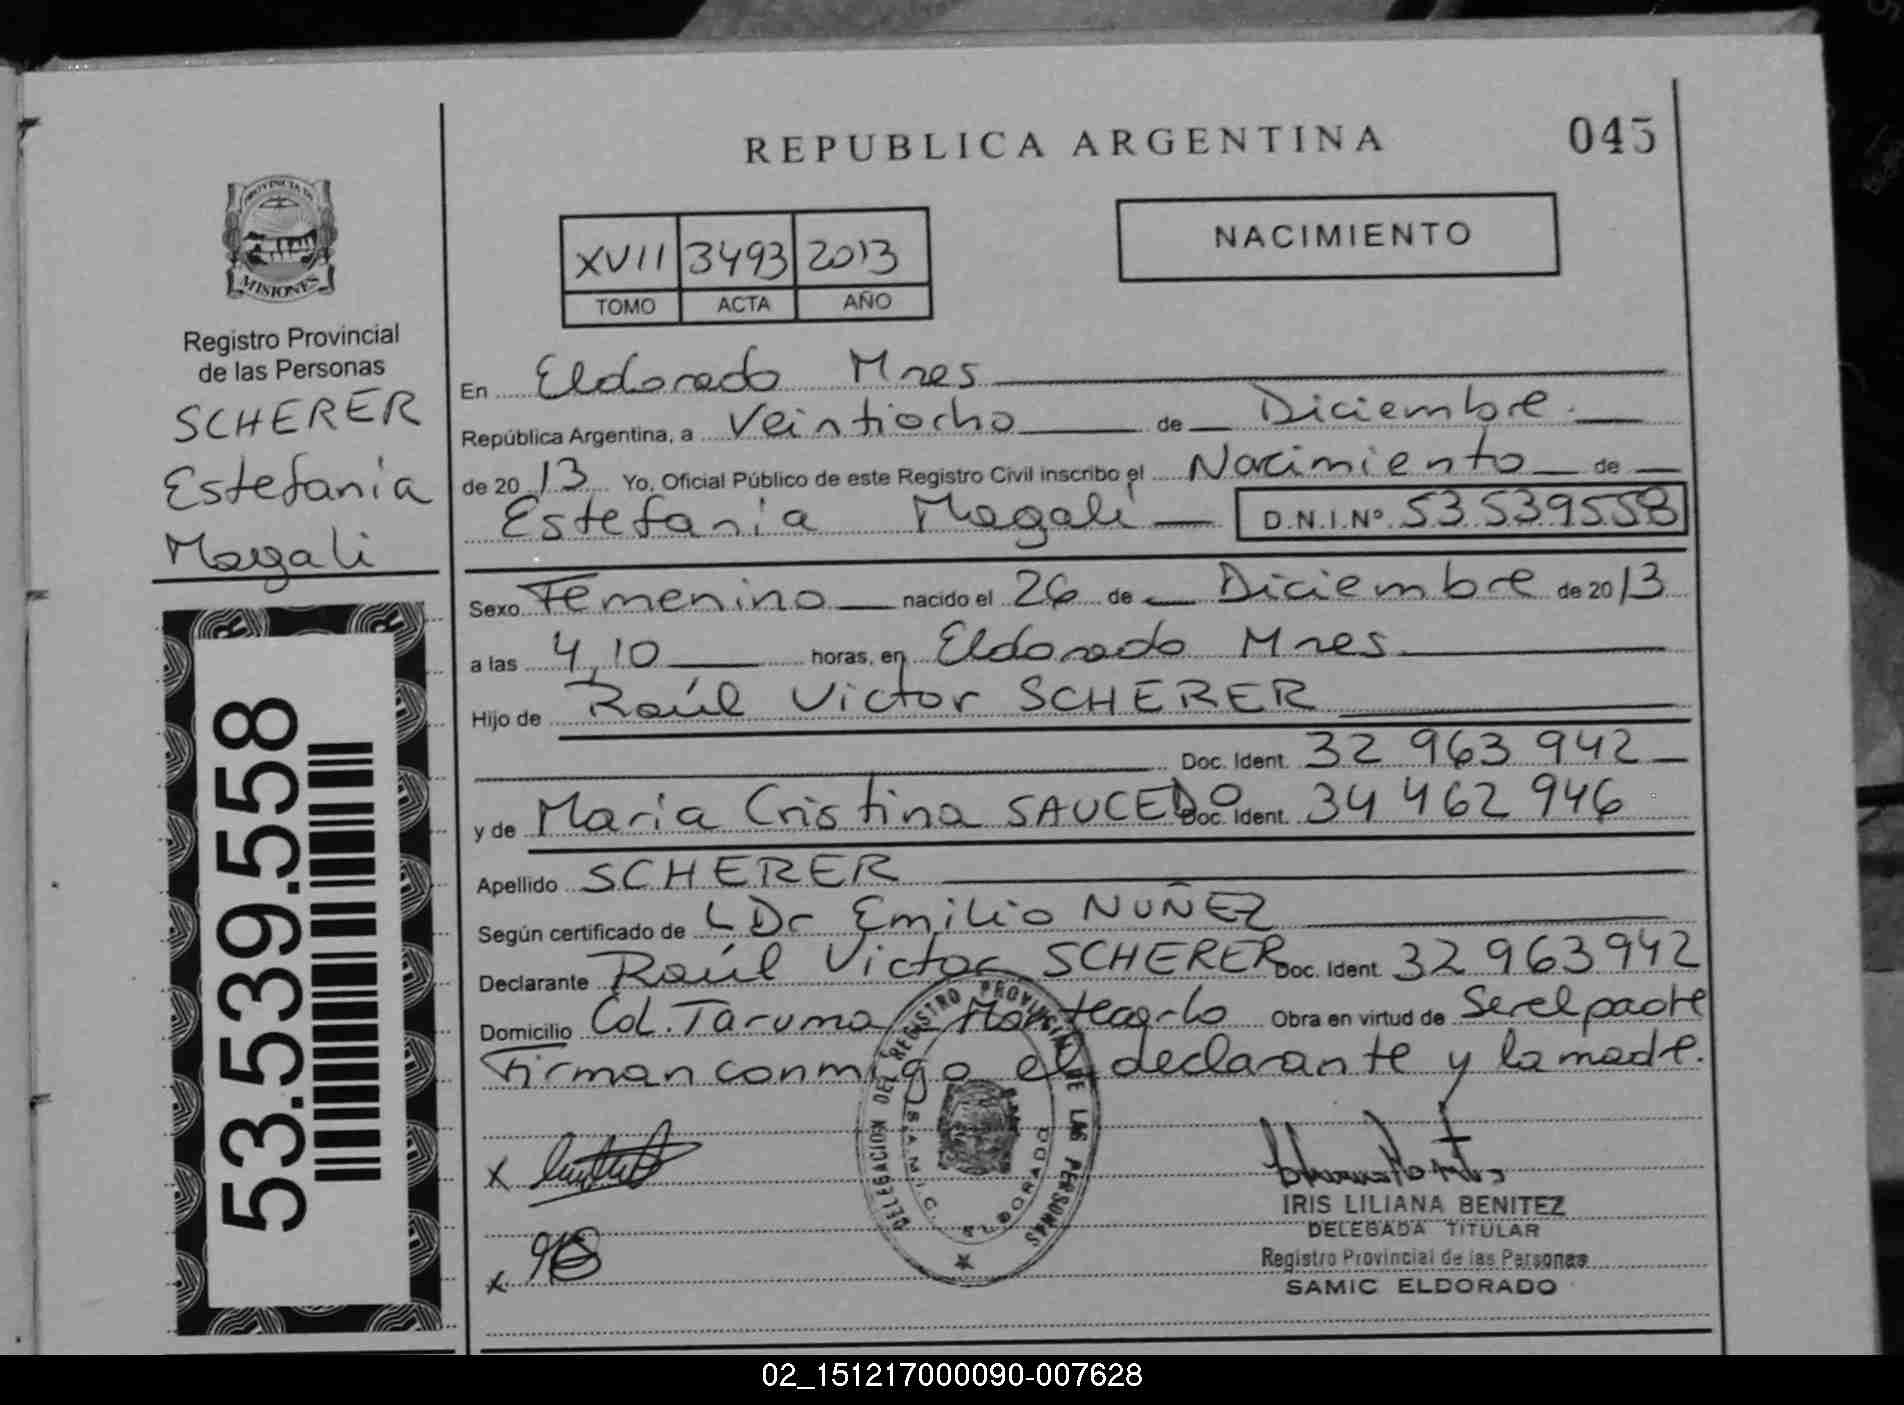 REPUBLICA ARGENTINA
045
NACIMIENTO
XVII 3493 2013
TOMO ACTA AÑO
PROVINCIA DE
MISIONES
Registro Provincial
de las Personas
SCHERER
Estefanía
Magali
53.539.558
En Eldorado Mnes
República Argentina, a Veintiocho de Diciembre.
de 20 13 Yo, Oficial Público de este Registro Civil inscribo el Nacimiento de
Estefanía Magalí D.N.I.Nº 53.539.558
Sexo Femenino nacido el 26 de Diciembre de 20 13
a las 4,10 horas, en Eldorado Mnes
Hijo de Raúl Victor SCHERER
Doc. Ident. 32 963 942
y de Maria Cristina SAUCEDO Doc. Ident. 34 462 946
Apellido SCHERER
Según certificado de Dr Emilio NUÑEZ
Declarante Raúl Victor SCHERER Doc. Ident. 32 963 942
Domicilio Col. Taruma Montecarlo Obra en virtud de Ser el padre
Firman conmigo el declarante y la madre.
DELEGACION DEL REGISTRO PROVINCIAL DE LAS PERSONAS
S.A.M.I.C. ELDORADO
x
x
IRIS LILIANA BENITEZ
DELEGADA TITULAR
Registro Provincial de las Personas
SAMIC ELDORADO
02_151217000090-007628